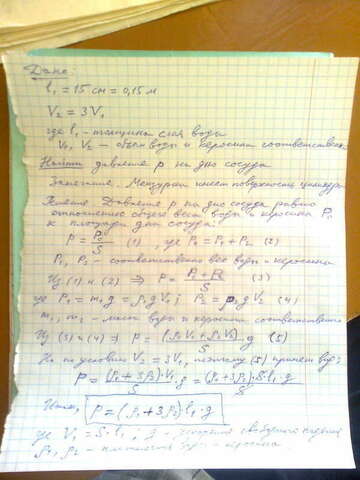 Дано:
l₁ = 15 см = 0,15 м
V₂ = 3V₁
где l₁ - толщина слоя воды
V₁, V₂ - объем воды и керосина соответственно.
Найти давление p на дно сосуда
Замечание. Мензурка имеет поверхность цилиндра
Давление p на дно сосуда равно
отношению общего веса воды и керосина P₀
к площади дна сосуда:
p = P₀/S (1), где P₀ = P₁ + P₂ (2)
P₁, P₂ - соответственно вес воды и керосина
Из (1) и (2) ⇒ p = (P₁ + P₂)/S (3)
где P₁ = m₁g = ρ₁gV₁; P₂ = ρ₂gV₂ (4)
m₁, m₂ - массы воды и керосина соответственно
Из (3) и (4) ⇒ p = (ρ₁V₁ + ρ₂V₂)/S g (5)
Но по условию V₂ = 3V₁, поэтому (5) примет вид:
p = (ρ₁ + 3ρ₂)·V₁/S·g = (ρ₁ + 3ρ₂)·S·l₁·g/S
Итак, p = (ρ₁ + 3ρ₂) l₁·g
где V₁ = S·l₁, g - ускорение свободного падения
ρ₁, ρ₂ - плотности воды и керосина.